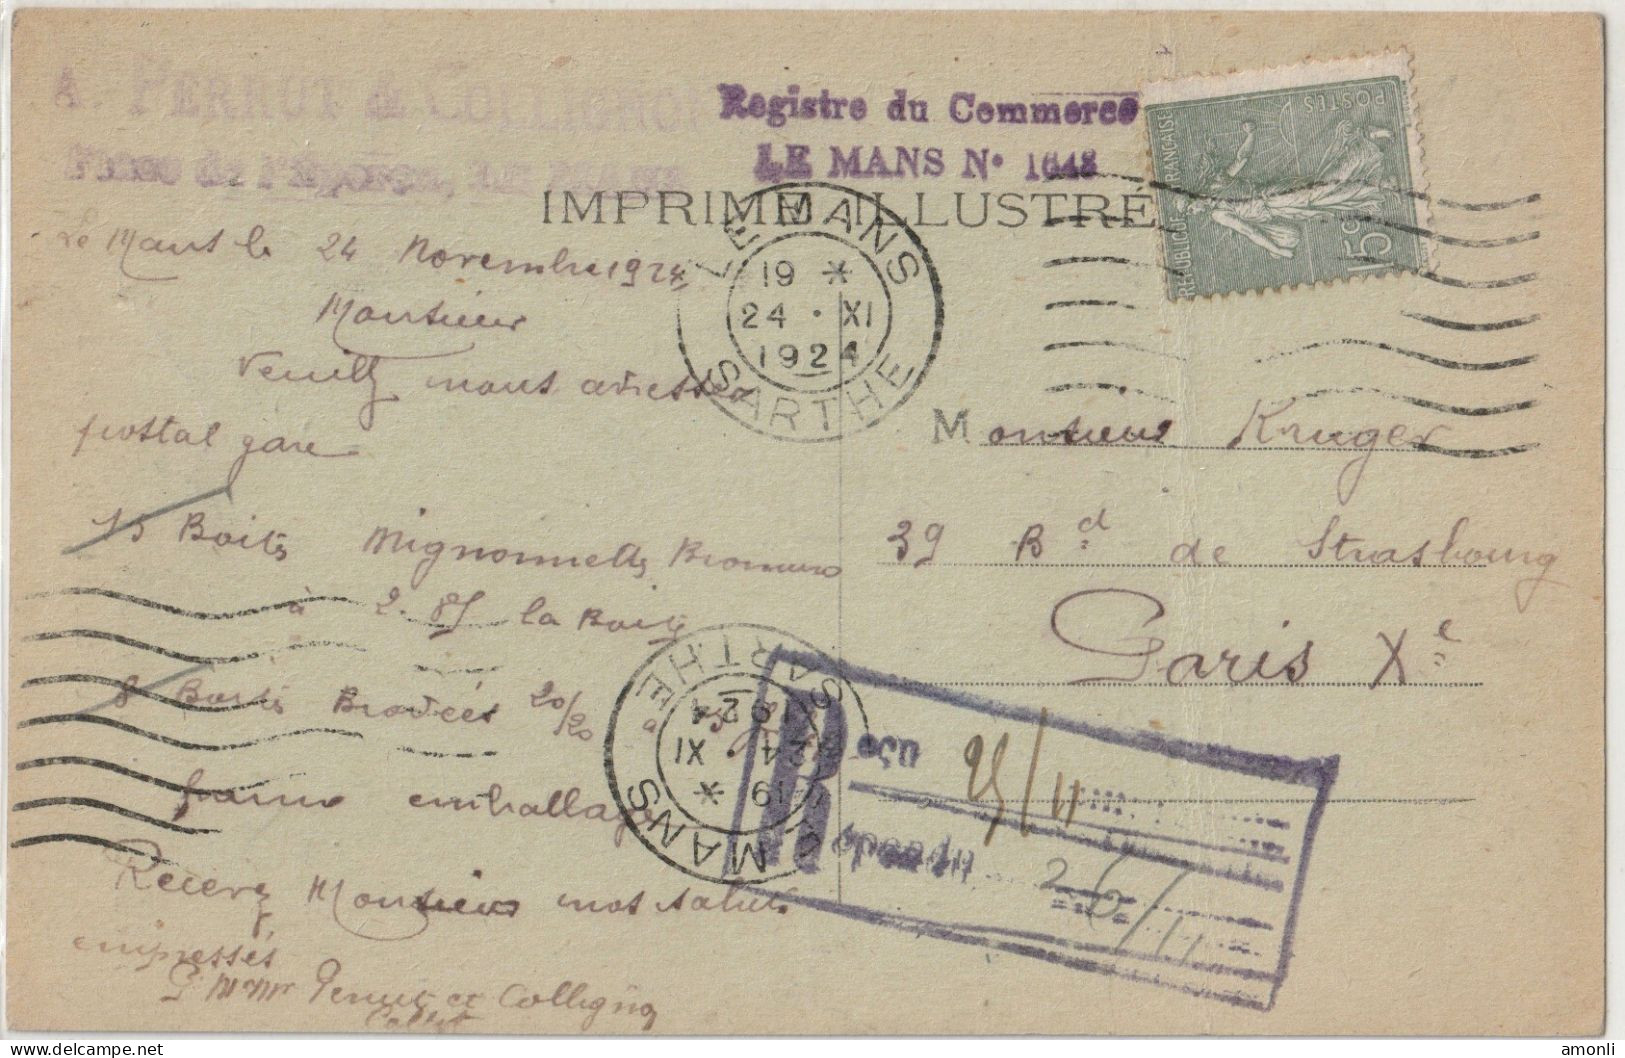 A. PERRUT & COLLIGNON
Place de l'Éperon, LE MANS
Registre du Commerce
LE MANS N° 1648
IMPRIMÉ ILLUSTRÉ
REPUBLIQUE FRANÇAISE
POSTES
15c
LE MANS
19 *
24 · XI
1924
SARTHE
Le Mans le 24 Novembre 1924
Monsieur
Veuillez nous adresser
postal gare
15 Boites Mignonnettes Bromure
à 2.85 la Boite
8 Boites Brovées 20/20 à
franco emballage
Recevez Monsieur nos saluts
empressés
Perrut et Collignon
Monsieur Kruger
39 Bd de Strasbourg
Paris Xe
LE MANS
19 *
24 · XI
1924
SARTHE
R
eçu 25/11
épondu 26/11
amonli
delcampe.net